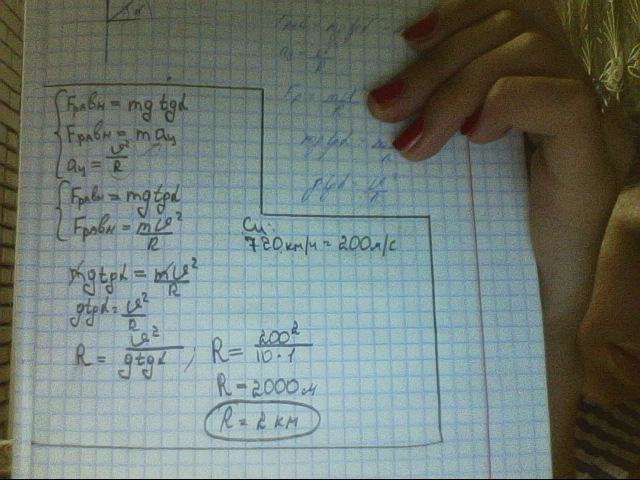 α
Fравн = mg tgα
Fравн = m aц
aц = υ²/R
Fравн = mg tgα
Fравн = mυ²/R
Си:
720 км/ч = 200 м/с
mg tgα = mυ²/R
g tgα = υ²/R
R = υ²/g tgα, R = 200²/10·1
R = 2000 м
R = 2 км